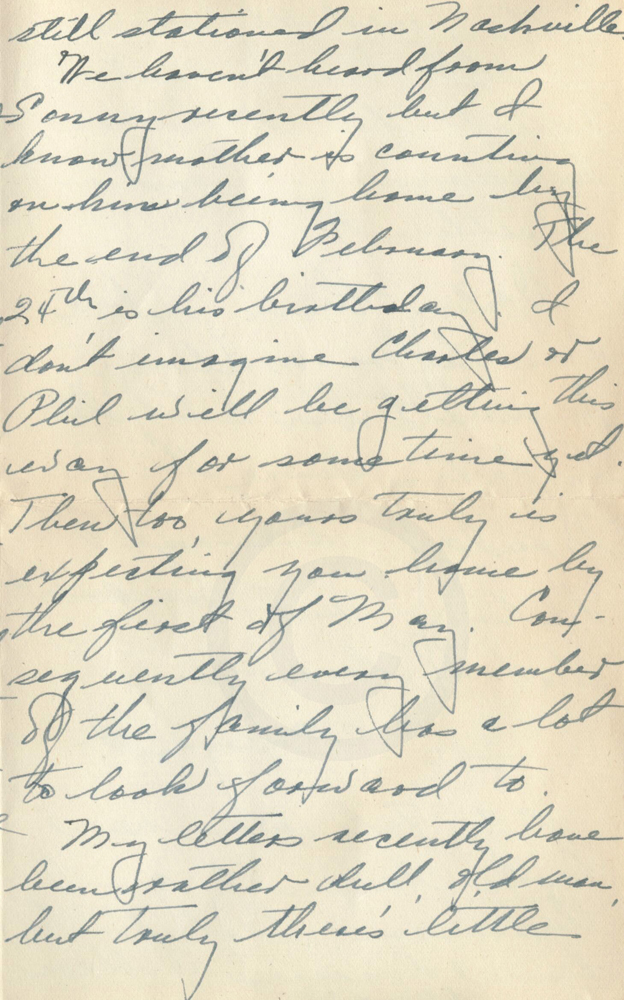 still stationed in Nashville.
We haven't heard from
Sonny recently but I
know mother is counting
on him being home by
the end of February. The
24th is his birthday. I
don't imagine Charles or
Phil will be getting this
way for sometime yet.
Then too, yours truly is
expecting you home by
the first of May. Con-
sequently every member
of the family has a lot
to look forward to.
My letters recently have
been rather dull, old man,
but truly there's little